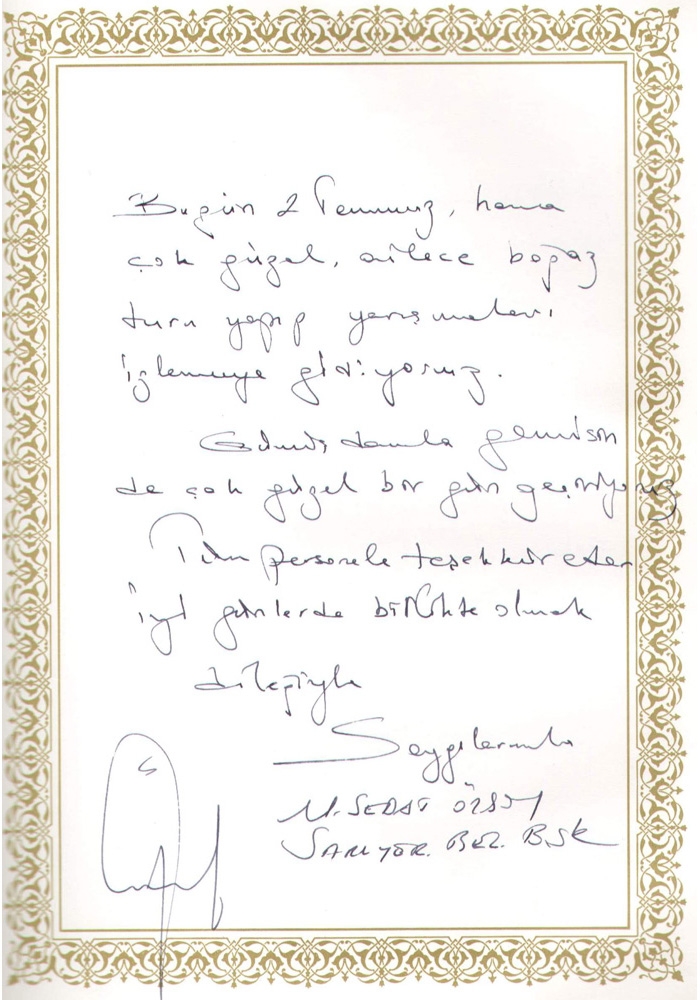 Bugün 2 Temmuz, hava
çok güzel, ailece boğaz
turu yapıp yarışmaları
izlemeye gidiyoruz.
Gümüş damla gemisin
de çok güzel bir gün geçiriyoruz
Tüm personele teşekkür eder
iyi günlerde birlikte olmak
dileğiyle
Saygılarımla
M. SEDAT ÖZSOY
SARIYER. BEL. BŞK